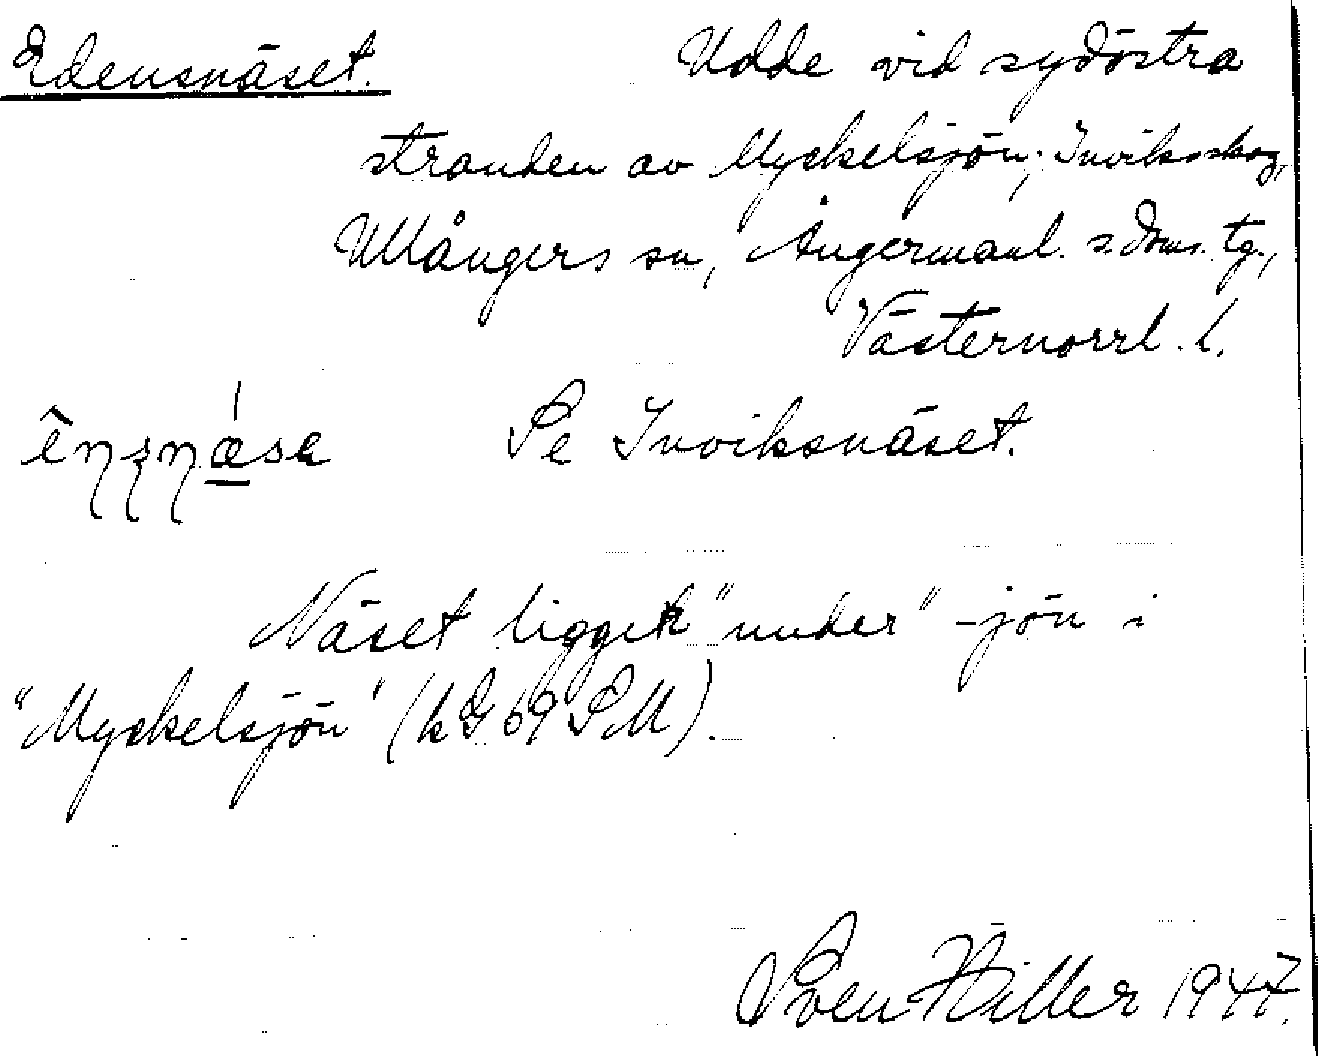 Edensnäset. Udde vid sydöstra
stranden av Myckelsjön; Inviksskog,
Ullångers sn, Ångermanl. s doms. tg.,
Västernorrl. l.
Se Inviksnäset.
Näset ligger "under" -jön i
"Myckelsjön" (kG 69 SM).
Sven Hiller 1947.